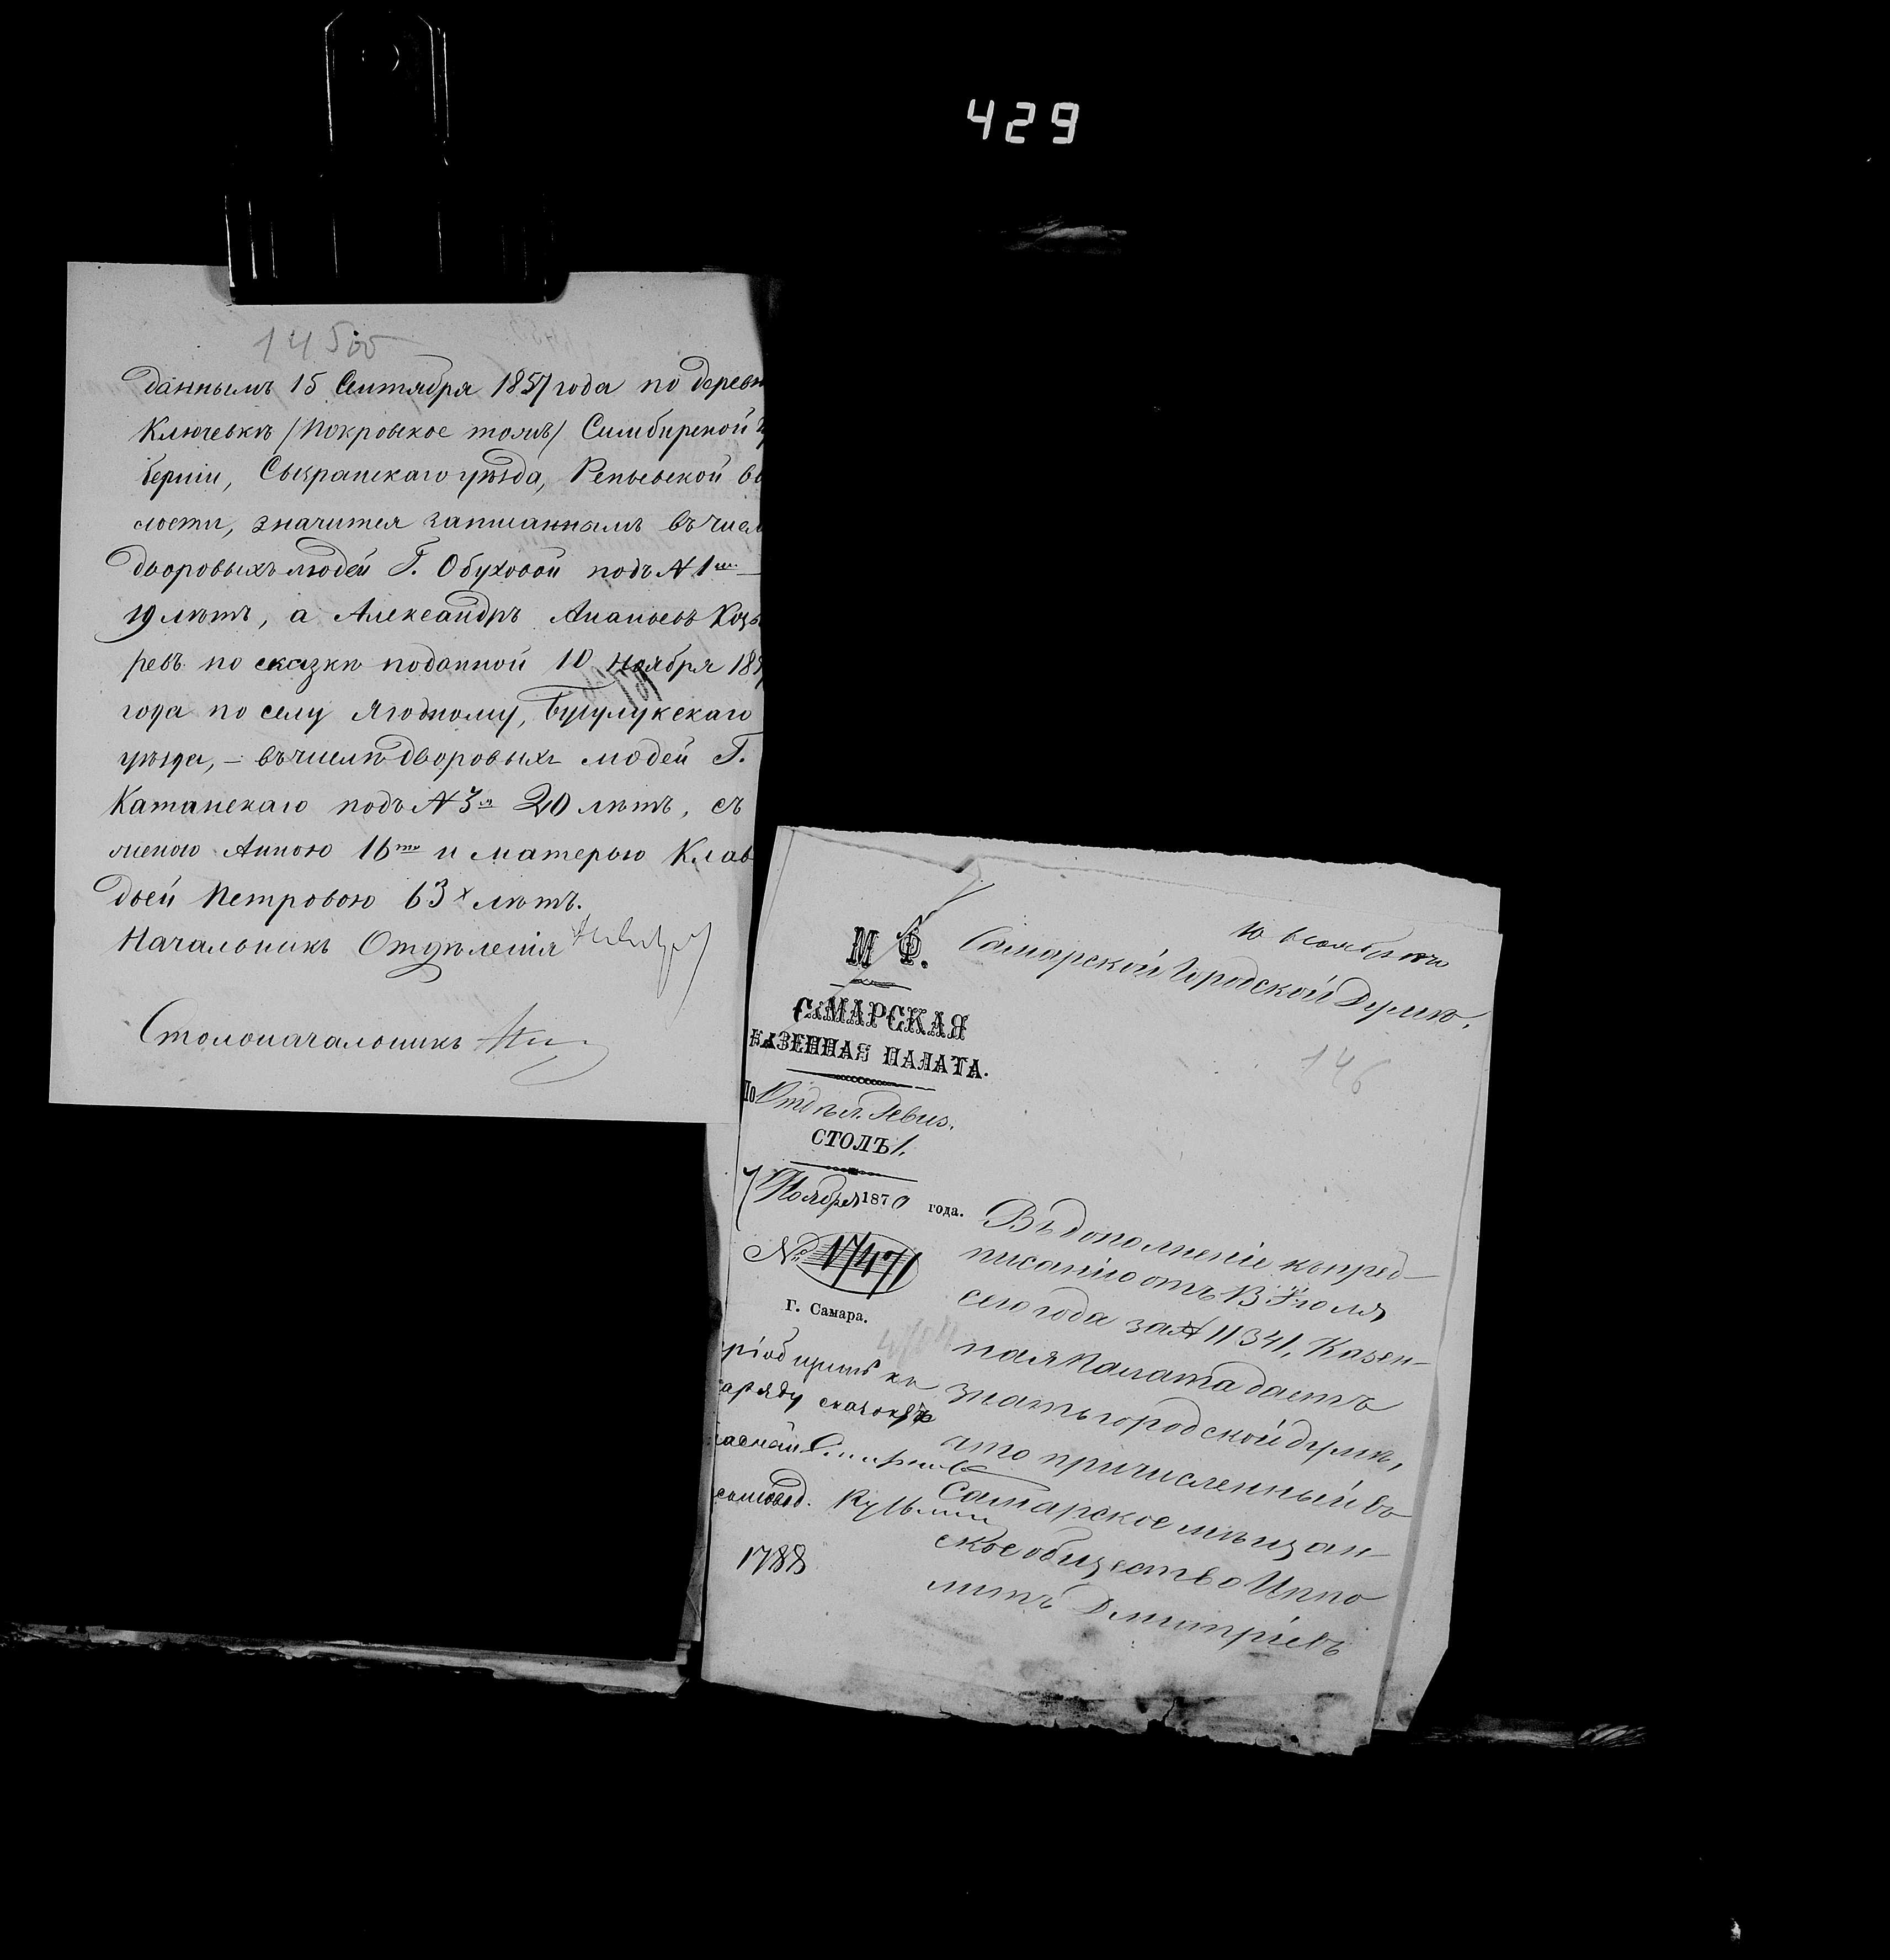 429
145 об
данными 15 Сентября 1857 года по деревн
Ключевкѣ /Покровское тожъ/ Симбирской гу
берніи, Сызранскаго уѣзда, Репьевской во
лости, значится записаннымъ въ числѣ
дворовыхъ людей Г. Обуховой подъ № 1мъ
19 лѣтъ, а Александръ Ананьевъ Козы
ревъ по сказкѣ поданной 10 Ноября 185
года по селу Ягодному, Бугулукскаго
уѣзда, – въ числѣ дворовыхъ людей Г.
Катанскаго подъ № 3м 20 лѣтъ, съ
женою Анною 16ти и матерью Клав
дьей Петровою 63х лѣтъ.
Начальникъ Отдѣленія
Столоначальникъ
М Ф.
САМАРСКАЯ
КАЗЕННАЯ ПАЛАТА.
По Отдѣл. Ревиз.
СТОЛЪ 1.
7 Ноября 1870 года.
№ 17471
Г. Самара.
ріобщить къ
аряду
1788
10 ноября
Самарской Городской Думѣ.
146
Въ дополненіе къ пред-
писанію отъ 13 Іюля
сего года за № 11341, Казен-
ная Палата даетъ
знать городской думѣ,
что причисленный въ
Самарское мѣщан-
ское общество Иппо
литъ Дмитріевъ